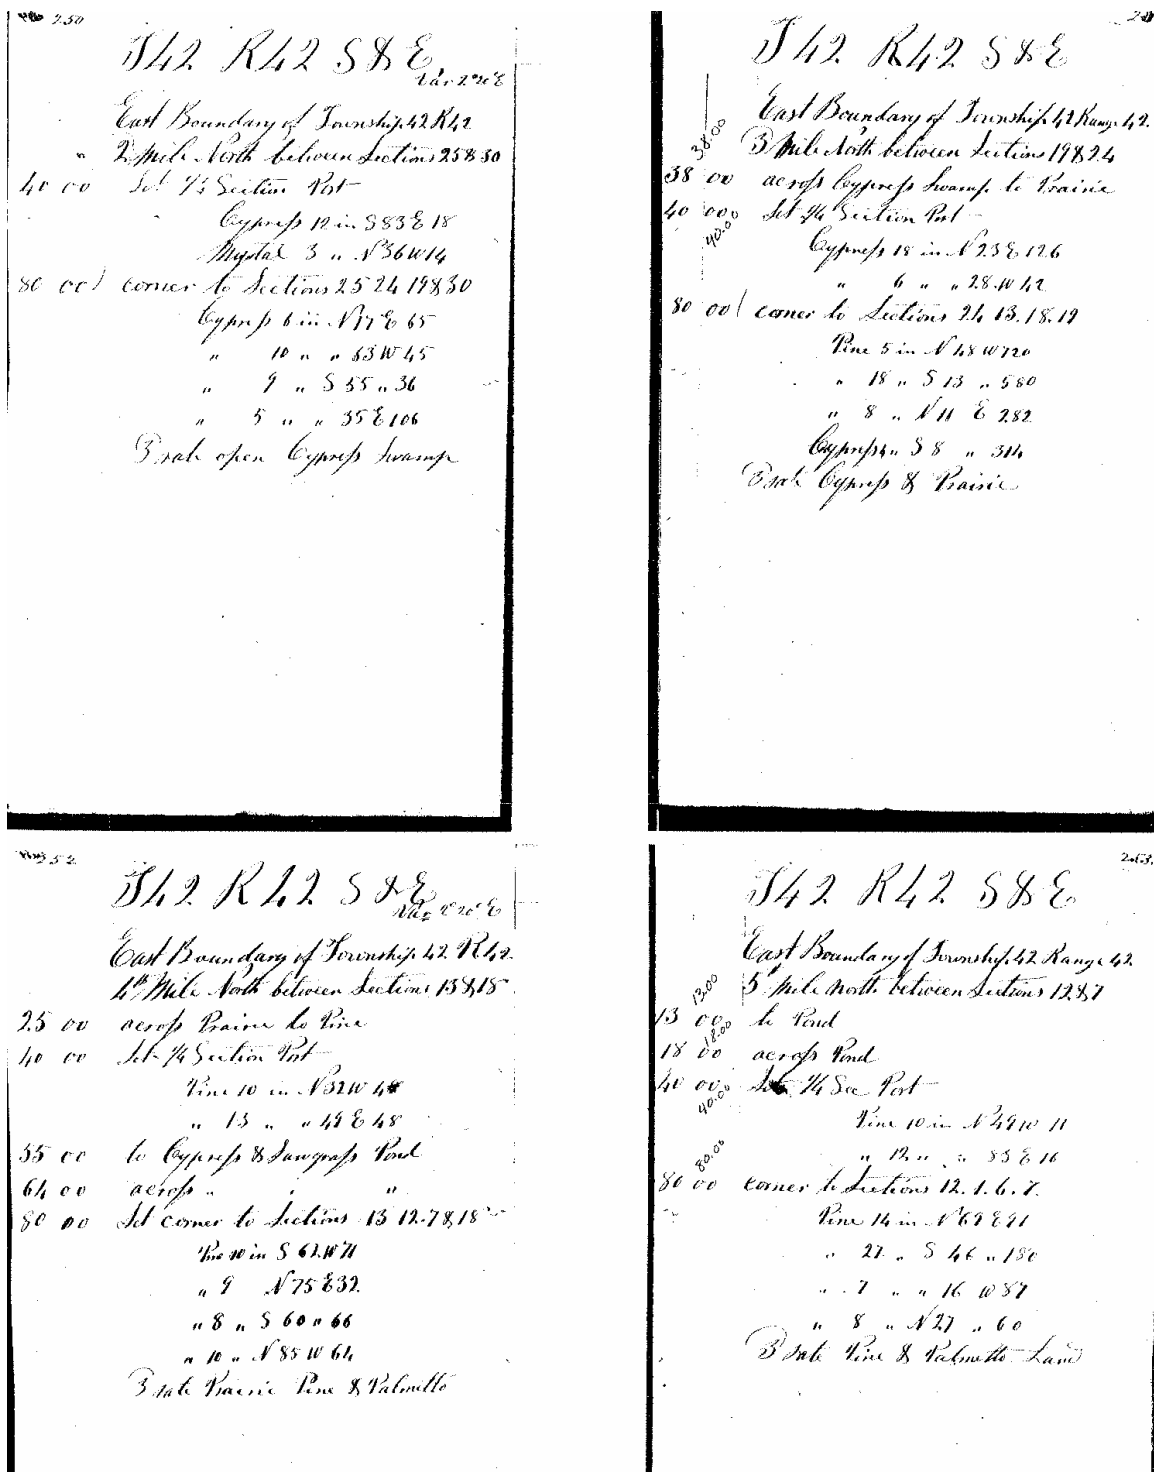 250
T42 R42 S & E
Var 2°20'E
East Boundary of Township 42 R42
" 2 Mile North between Sections 25 & 30
40 00 Set 1/4 Section Post
Cypress 12 in S 83 E 18
3 " N 36 W 14
80 00 corner to Sections 25 24 19 & 30
Cypress 6 in N 17 E 65
" 10 " " 63 W 45
" 9 " S 55 " 36
" 5 " " 35 E 106
3 rate open Cypress Swamp
T42 R42 S & E
East Boundary of Township 42 Range 42.
38.00
3 Mile North between Sections 19 & 24
38 00 across Cypress Swamp to Prairie
40 00 Set 1/4 Section Post
40.00
Cypress 18 in N 23 E 126
" 6 " " 28 W 42
80 00 corner to Sections 24 13. 18. 19
Pine 5 in N 48 W 720
" 18 " S 13 " 580
" 8 " N 11 E 282
Cypress 4 " S 8 " 314
3 rate Cypress & Prairie
252
T42 R42 S & E
Var 2°20' E
East Boundary of Township 42 R42.
4th Mile North between Sections 13 & 18
25 00 across Prairie to Pine
40 00 Set 1/4 Section Post
Pine 10 in N 32 W 48
" 13 " " 49 E 48
55 00 to Cypress & Sawgrass Pond
64 00 across " "
80 00 Set corner to Sections 13 12. 7 & 18
Pine 10 in S 62 W 71
" 9 N 75 E 32.
" 8 " S 60 " 66
" 10 " N 85 W 64
3 rate Prairie Pine & Palmetto
253.
T42 R42 S & E
East Boundary of Township 42 Range 42
5 Mile North between Sections 12 & 7
13.00
13 00 to Pond
18.00
18 00 across Pond
40 00 Set 1/4 Sec Post
40.00
Pine 10 in N 49 W 11
" 12 " " 83 E 16
80.00
80 00 corner to Sections 12. 1. 6. 7.
Pine 14 in N 69 E 91
" 27 " S 46 " 180
" 7 " " 16 W 87
" 8 " N 27 " 60
3 rate Pine & Palmetto Land